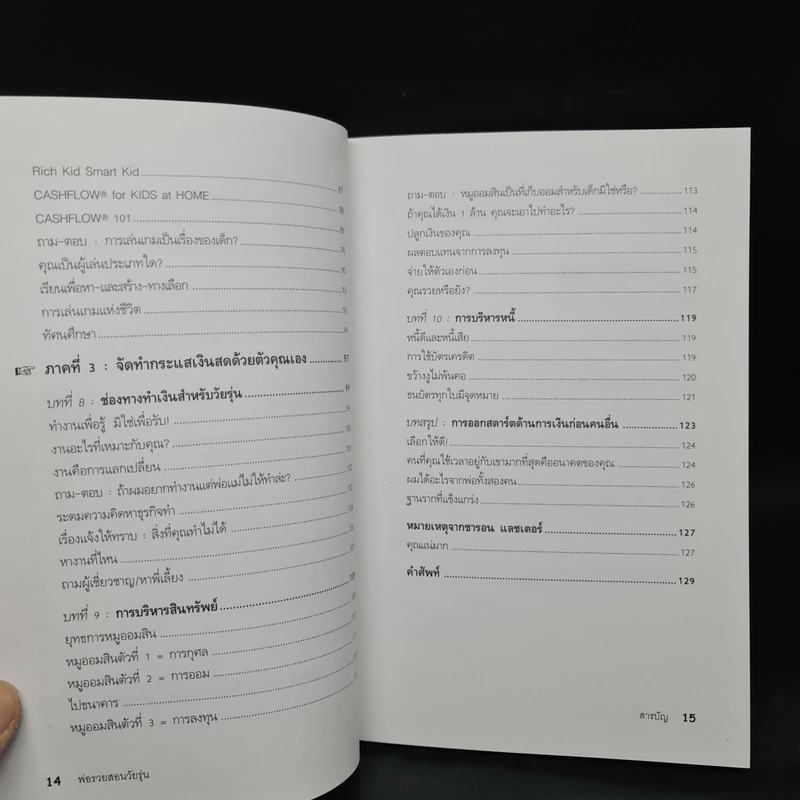 Rich Kid Smart Kid 87
CASHFLOW® for KIDS at HOME 88
CASHFLOW® 101 89
ถาม-ตอบ : การเล่นเกมเป็นเรื่องของเด็ก? 90
คุณเป็นผู้เล่นประเภทใด? 90
เรียนเพื่อหา-และสร้าง-ทางเลือก 93
การเล่นเกมแห่งชีวิต 93
ทัศนศึกษา 94
☞ ภาคที่ 3 : จัดทำกระแสเงินสดด้วยตัวคุณเอง 97
บทที่ 8 : ช่องทางทำเงินสำหรับวัยรุ่น 99
ทำงานเพื่อรู้ มิใช่เพื่อรับ!
งานอะไรที่เหมาะกับคุณ?
งานคือการแลกเปลี่ยน
ถาม-ตอบ : ถ้าผมอยากทำงานแต่พ่อแม่ไม่ให้ทำล่ะ?
ระดมความคิดหาธุรกิจทำ
เรื่องแจ้งให้ทราบ : สิ่งที่คุณทำไม่ได้
หางานที่ไหน
ถามผู้เชี่ยวชาญ/หาพี่เลี้ยง
บทที่ 9 : การบริหารสินทรัพย์
ยุทธการหมูออมสิน
หมูออมสินตัวที่ 1 = การกุศล
หมูออมสินตัวที่ 2 = การออม
ไปธนาคาร
หมูออมสินตัวที่ 3 = การลงทุน
14 พ่อรวยสอนวัยรุ่น
ถาม-ตอบ : หมูออมสินเป็นที่เก็บออมสำหรับเด็กมิใช่หรือ? 113
ถ้าคุณได้เงิน 1 ล้าน คุณจะเอาไปทำอะไร? 114
ปลูกเงินของคุณ 114
ผลตอบแทนจากการลงทุน 115
จ่ายให้ตัวเองก่อน 115
คุณรวยหรือยัง? 117
บทที่ 10 : การบริหารหนี้ 119
หนี้ดีและหนี้เสีย 119
การใช้บัตรเครดิต 119
ขว้างงูไม่พ้นคอ 120
ธนบัตรทุกใบมีจุดหมาย 121
บทสรุป : การออกสตาร์ตด้านการเงินก่อนคนอื่น 123
เลือกให้ดี! 124
คนที่คุณใช้เวลาอยู่กับเขามากที่สุดคืออนาคตของคุณ 124
ผมได้อะไรจากพ่อทั้งสองคน 126
ฐานรากที่แข็งแกร่ง 126
หมายเหตุจากชารอน แลชเตอร์ 127
คุณแน่มาก 127
คำศัพท์ 129
สารบัญ 15